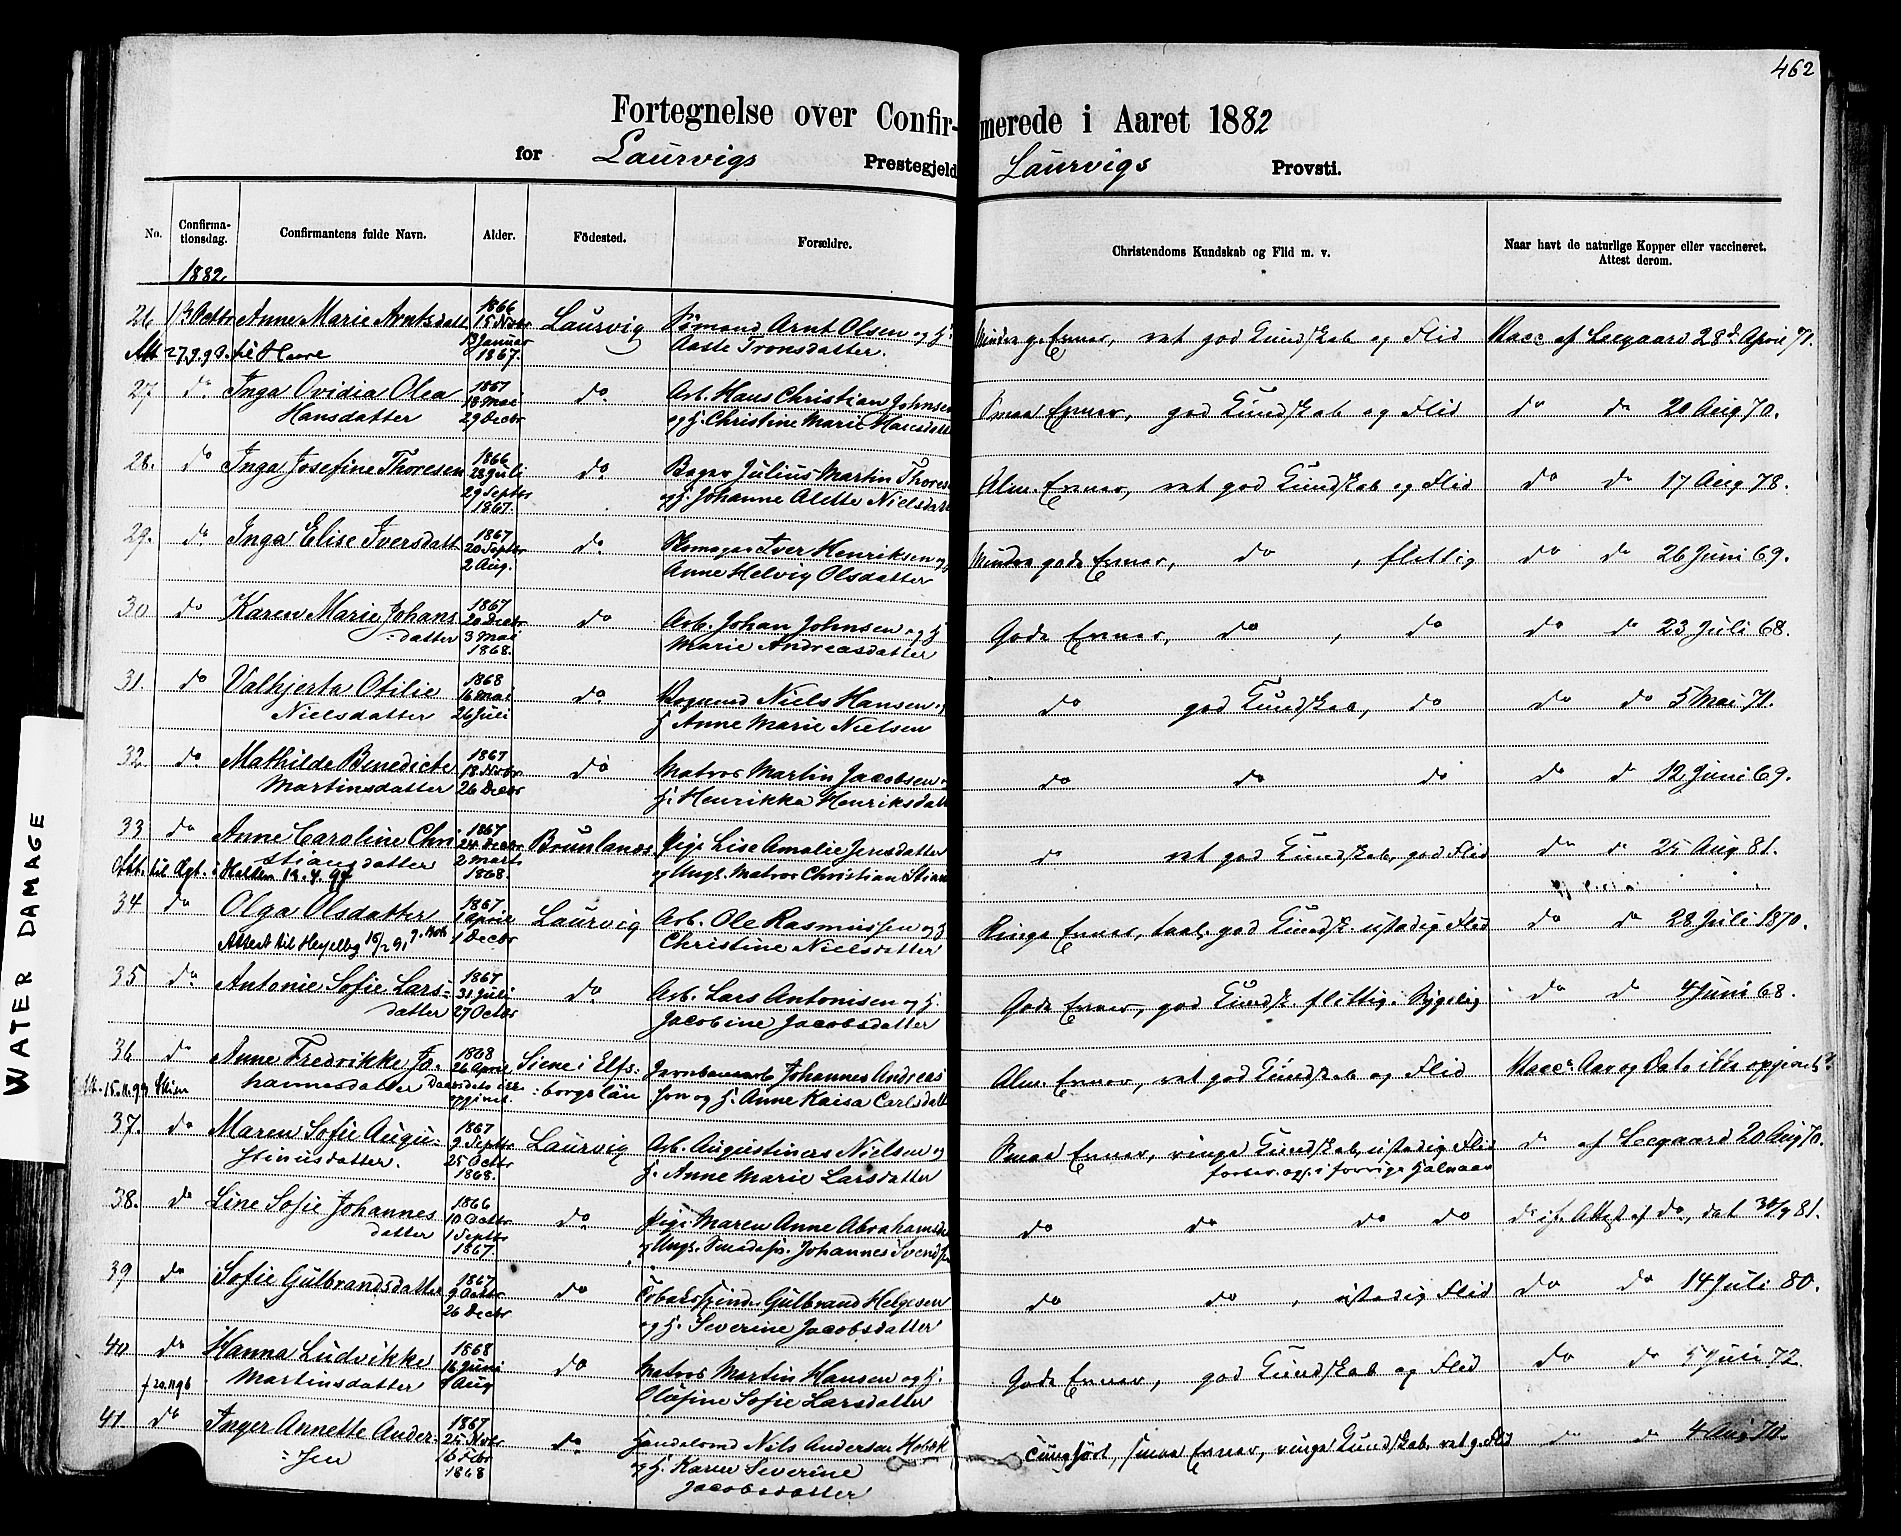 462
Fortegnelse over Confirmerede i Aaret 1882
for Laurvigs Prestegjeld Laurvigs Provsti.
No. Confirmationsdag. Confirmantens fulde Navn. Alder. Födested. Forældre. Christendoms Kundskab og Flid m. v. Naar havt de naturlige Kopper eller vaccineret. Attest derom.
1882
26 13 Octbr Anne Marie Arntsdatt 1866 15 Novbr 13 Januar 1867. Laurvig Sømand Arnt Olsen og H. Mindre g. Evner, ret god Kundskab og Flid Vacc af Leegaard 28d April 71.
Att 27.9.90. til Horre Aaste Tronsdatter.
27. do Inga Ovidia Olea 1867 18 Mai 29 Decbr do. Arb. Hans Christian Johnsen Smaa Evner, god Kundskab og Flid do do 20 Aug 70.
Hansdatter og H. Christine Marie Hansdatter
28. do Inga Josefine Thoresen 1866 28 Juli 29 Septbr 1867. do Bager Julius Martin Thoresen Alm. Evner, ret god Kundskab og Flid do do 17 Aug 78.
og H. Johanne Alette Nielsdatt
29. do Inga Elise Iversdatt 1867 20 Septbr 2 Aug. do Skomager Iver Henriksen og Mindre gode Evner, do, flittig do do 26 Juni 69.
Anne Helvig Olsdatter
30 do Karen Marie Johans 1867 20 Decbr 3 Mai 1868. do Arb. Johan Johnsen og H. Gode Evner, do, do do do 23 Juli 68.
datter Marie Andreasdatter
31. do Valkjerta Otilie 1868 16 Mai 26 Juli do Niels Hansen og do god Kundskab, do do do 5 Mai 71.
Nielsdatter H. Anne Marie Nielsen
32 do Mathilde Benedicte 1867 18 Novbr 26 Decbr do Matros Martin Jacobsen og do do do do do 12 Juni 69.
Martinsdatter H. Henrikke Henriksdatt
33 do Anne Caroline Chri 1867 24 Decbr 2 Marts 1868. Brunlanes Pige Lise Amalie Jensdatter do ret god Kundskab, god Flid do do 25 Aug 81.
stiansdatter og Ungk. Matros Christian
Att. til Ægt. i Halden 13.4.97
34 do Olga Olsdatter 1867 1 April 1 Decbr Laurvig Arb. Ole Rasmussen og H. Ringe Evner, taal. god Kundsk ustadig Flid do do 28 Juli 1870.
Attest til 16/2 91 Christine Nielsdatter
35 do Antonie Sofie Lars- 1867 31 Juli 27 Octbr do Arb. Lars Antonisen og H. Gode Evner, god Kundsk. flittig. Sygelig do do 4 Juni 68.
datter Jacobine Jacobsdatter
36 do Anne Fredrikke Jo- 1868 26 April Siene i Elfs- Jernbanearb Johannes Andreas Alm. Evner, ret god Kundskab og Flid Vacc. Aar og Dato ikke opgivet.
hannesdatter Daabsdato ikke opgivet. borgslän son og H. Anne Kaisa Carlsdatt
Att. 15.11.93 Skien
37. do Maren Sofie Augu- 1867 9 Septbr 25 Octbr 1868. Laurvig Arb. Augustinus Nielsen og Smaa Evner, ringe Kundskab, ustadig Flid do af Leegaard 20 Aug 70.
stinusdatter. H. Anne Marie Larsdatter i forrige Halvaar
38. do Line Sofie Johannes 1866 10 Octbr 1 Septbr 1867. do. Pige Maren Anne Abrahamsdatt do do do do do if. Attest af do, dat 30/9 81.
datter og Ungk. Johannes Svendsen
39 do Sofie Gulbrandsdatter 1867 9 Octbr 26 Decbr do Tobaksspind. Gulbrand Helgesen do do, ustadig Flid do do 14 Juli 80.
og H. Severine Jacobsdatter
40 do Hanna Ludvikke 1868 16 Juni Aug do Matros Martin Hansen og H. Gode Evner, god Kundskab og Flid do do 5 Juli 72.
Martinsdatter Olufine Sofie Larsdatter
41. do Inger Annette Ander- 1867 25 Novbr 16 Febr 1868 do Handelsmd Nils Andersen Holbæk Tunghørt, smaa Evner, ringe Kundskab, ret g. Flid do do 4 Aug 70.
sen og H. Karen Severine
Jacobsdatter
WATER DAMAGE